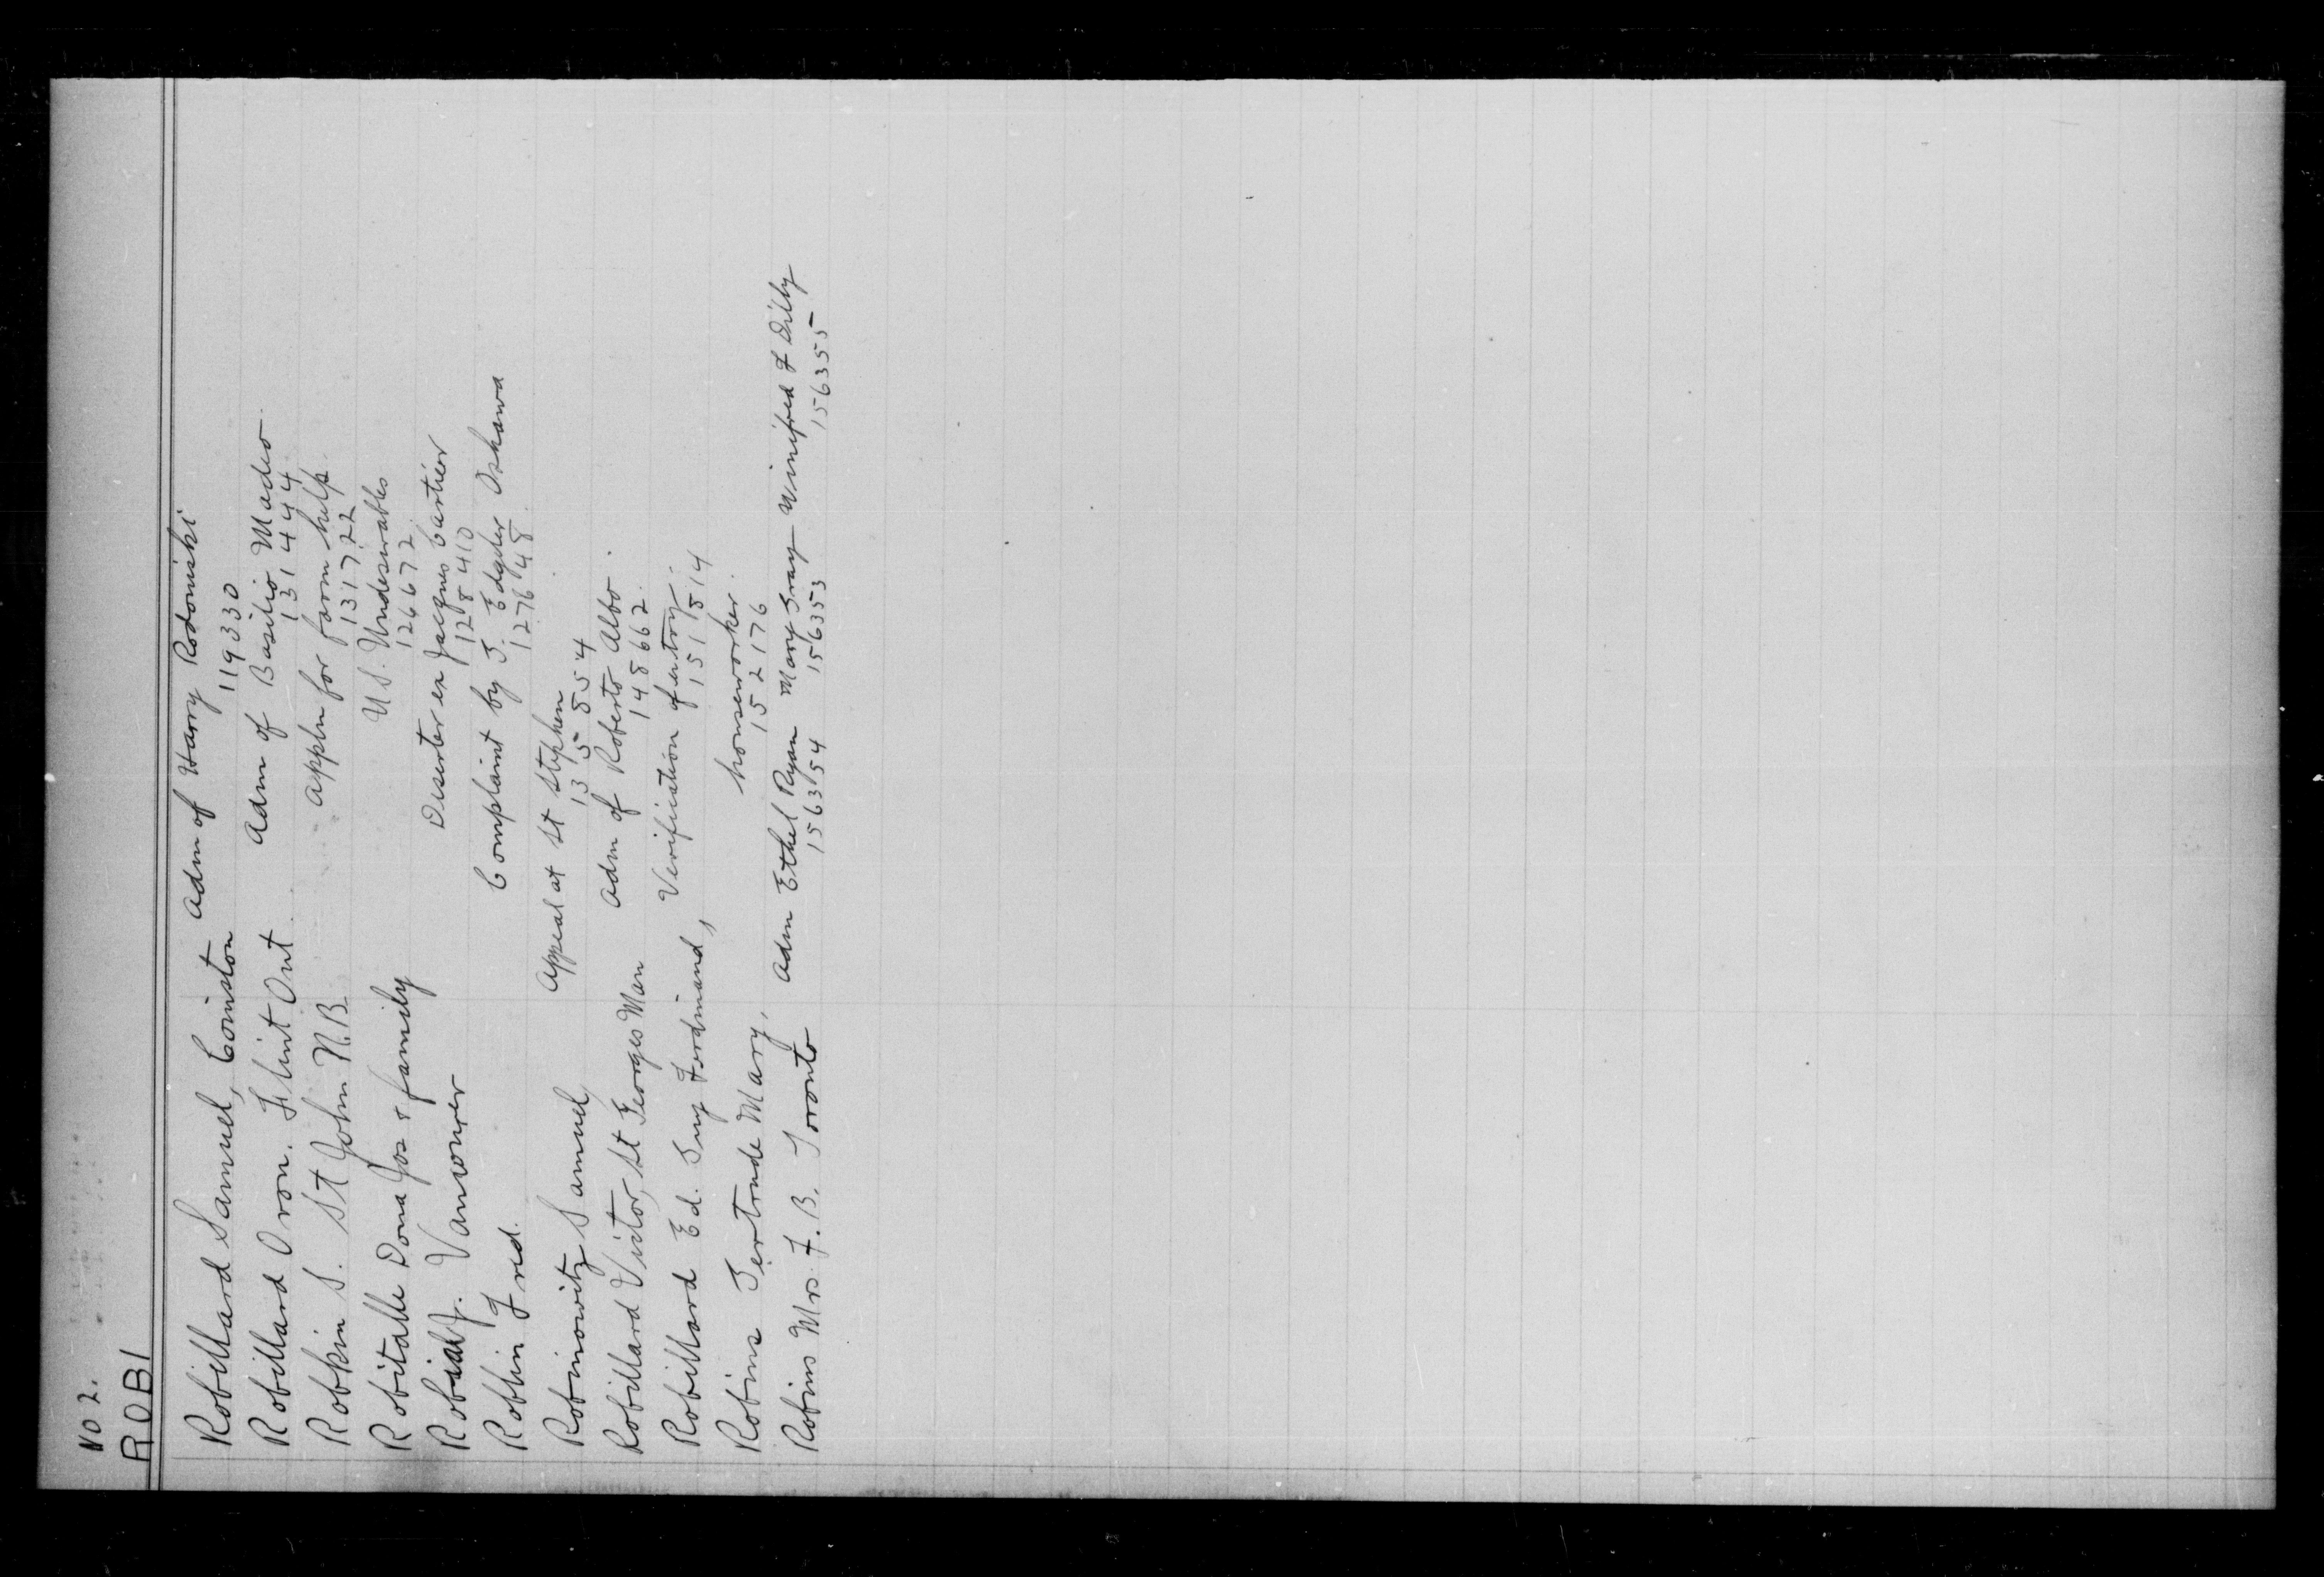 NO 2.
ROBI
Robillard Samuel, Coniston Adm of Harry Rodoniski
119330
Robillard Ovon. Flint Ont. Adm of Basilio Madeo.
131444
Robkin S. St John N.B. Appln for farm help.
131722
Robitalle Dona Jos & family U.S. Undesirables
126672.
J. Vancouver Deserter ex Jacques Cartier
128410
Roblin Fred. Complaint by J. Edgder Oshawa
127648.
Robinowitz Samuel, Appeal at St Stephen
135854
Robillard Victor, St Georges Man Adm of Roberto Albo.
148662.
Robillard Ed. Guy Ferdinand, Verification of entry.
151814
Robins Gertrude Mary, houseworker.
152176
Robins Mrs. F.B. Toronto Adm Ethel Ryan Mary Gray Winifred F Dilly
156354 156353 156355